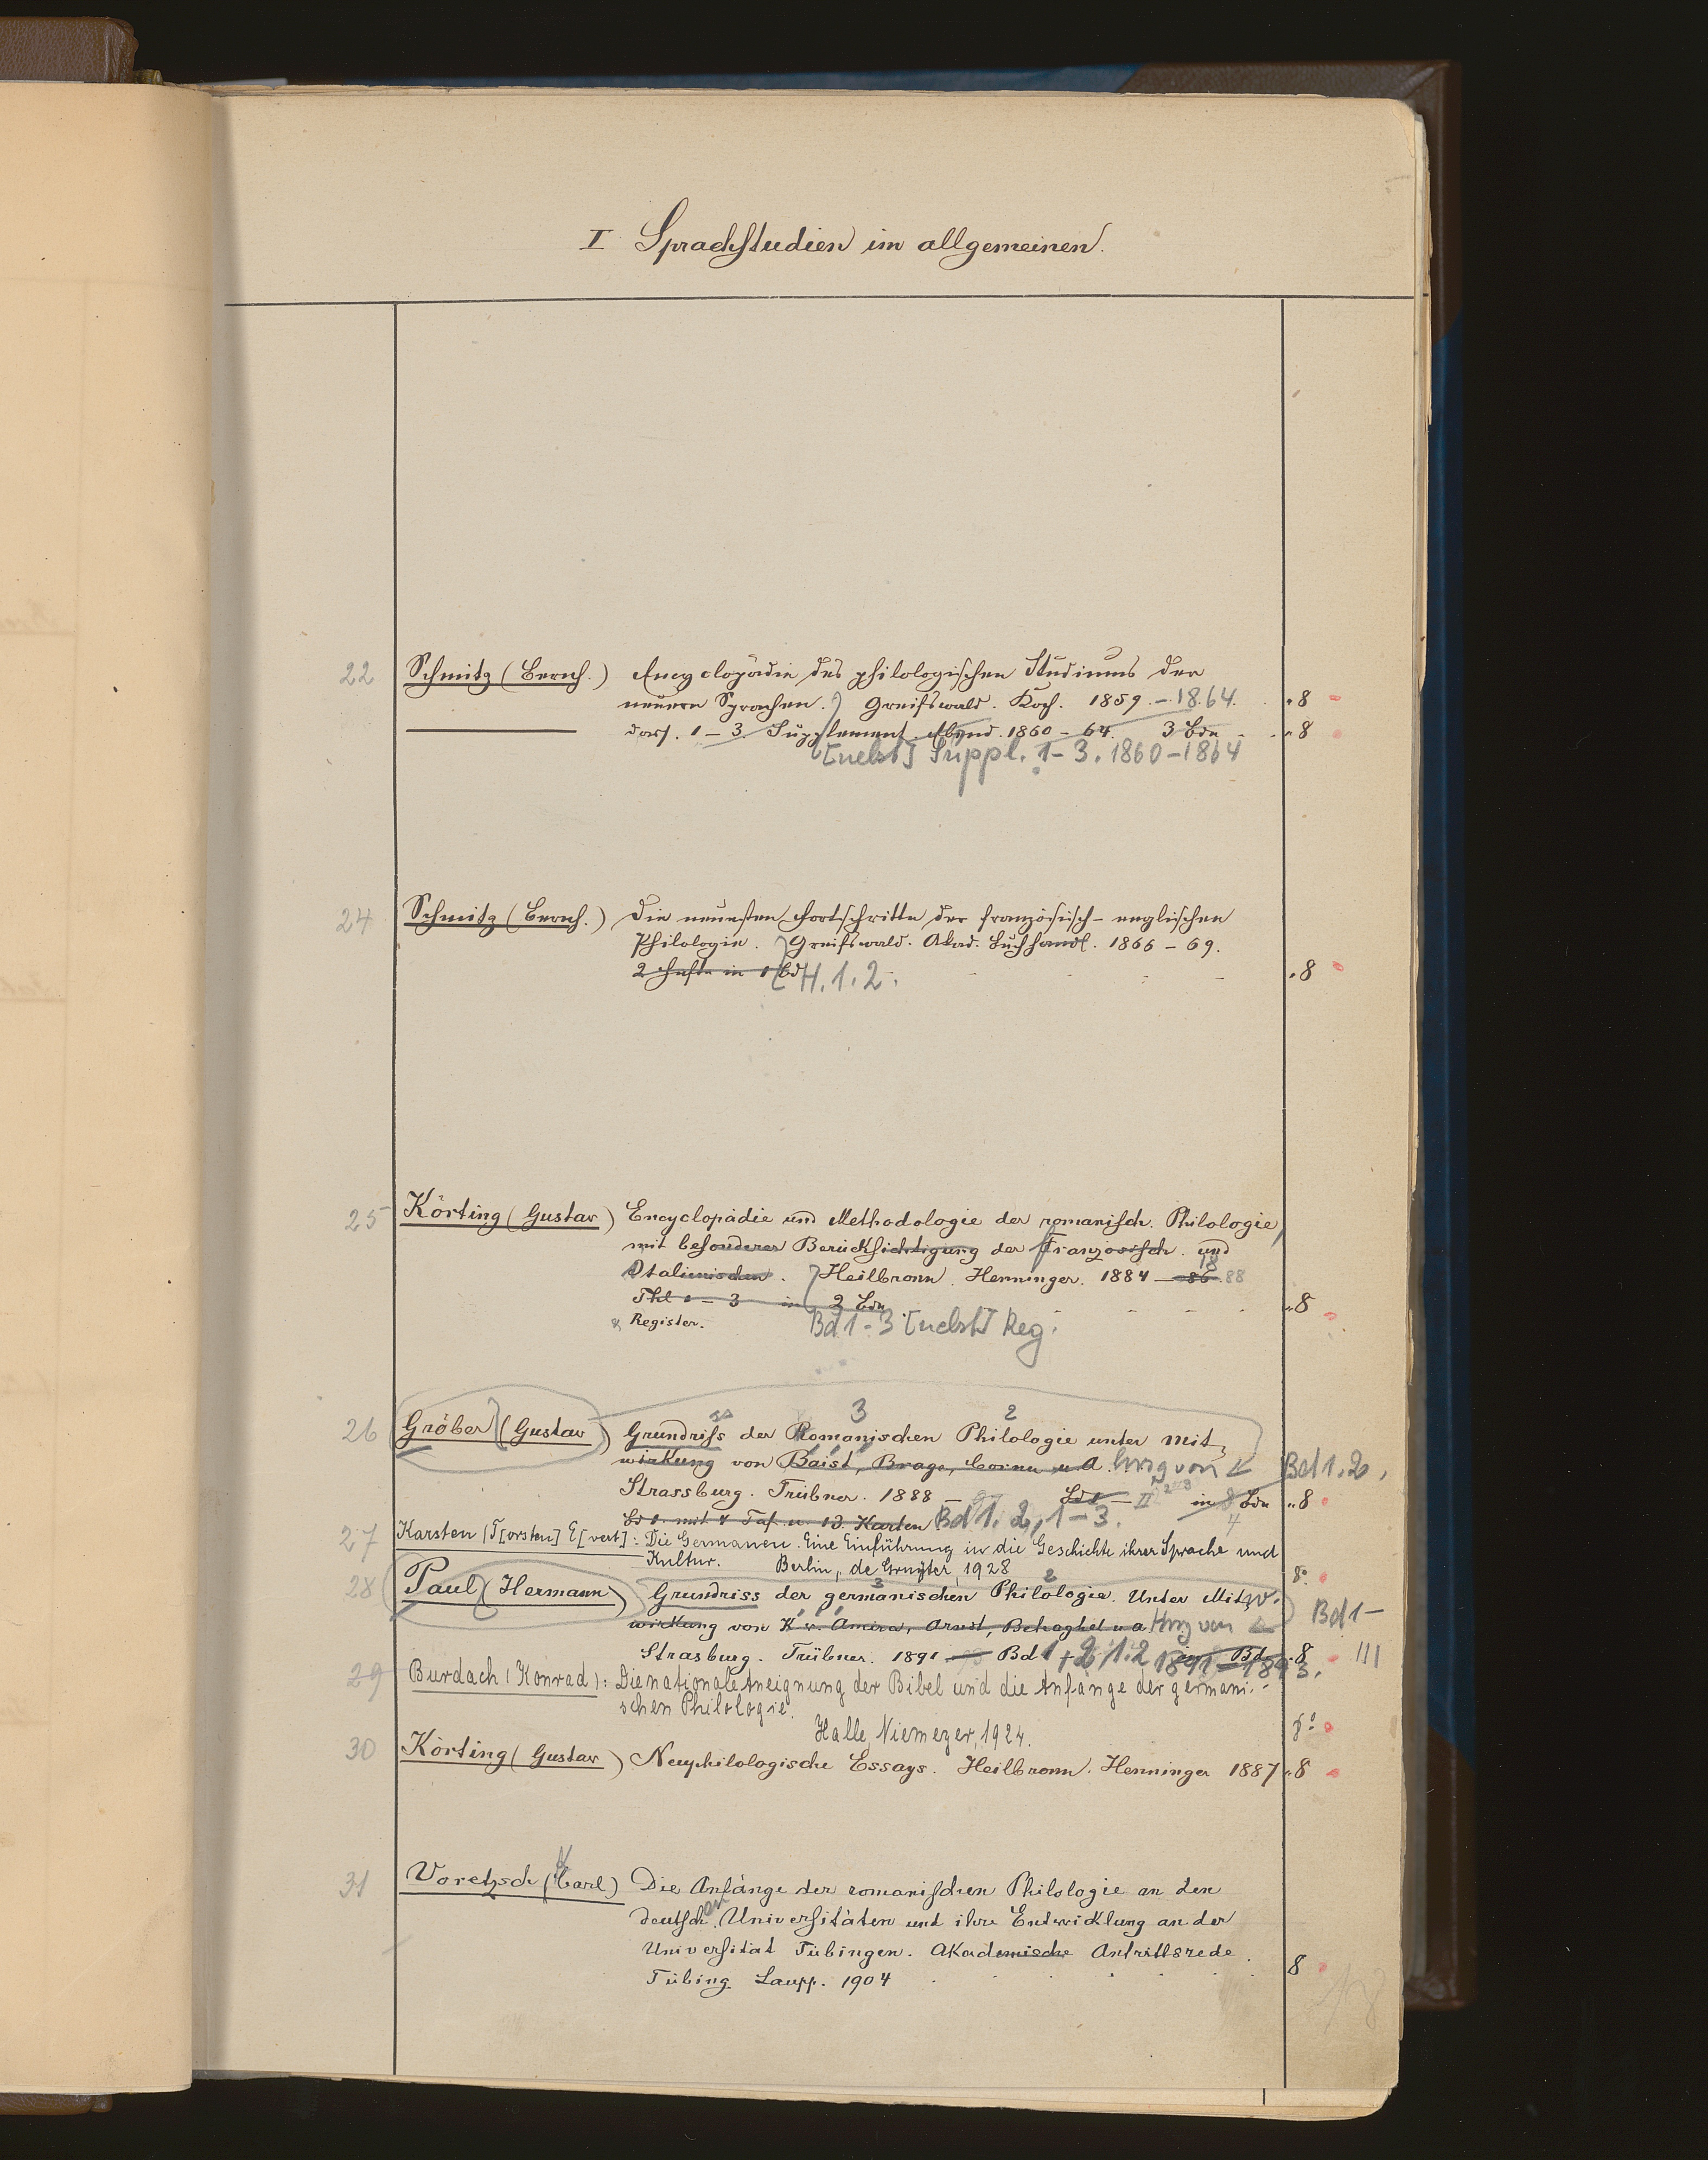 I Sprachstudien im allgemeinen.
22 Schmitz (Bernh.) Encyclopädie des philologischen Studiums der
neuern Sprachen. Greifswald. Koch. 1859. - 1864. 8
dass. 1-3. Supplement. Ebend. 1860-64. 3 Bde 8
[nebst] Suppl. 1-3. 1860-1864
24 Schmitz (Bernh.) Die neuesten Fortschritte der französisch-englischen
Philologie. Greifswald. Akad. Buchhandl. 1866-69.
2 Hefte in 1 Bd H. 1. 2. 8
25 Körting (Gustav) Encyclopädie und Methodologie der romanisch. Philologie
mit besonderer Berücksichtigung der französisch. und
Italienischen. Heilbronn. Henninger. 1884 - 86 1888
Thl 1-3 in 2 Bdn 8
& Register. Bd 1-3 [nebst] Reg.
26 Gröber (Gustav) Grundriss der Romanischen Philologie unter Mit-
wirkung von Baist, Brage, Cornu u. A. hrsg von Bd 1.2,
Strassburg. Trübner. 1888 - Bd 1 - II in Bdn 8
Bd 1. mit 4 Taf. u. 13 Karten Bd 1. 2, 1-3. 4
27 Karsten (T[orsten] E[vert]: Die Germanen. Eine Einführung in die Geschichte ihrer Sprache und
Kultur. Berlin, de Gruyter, 1928 8°
28 Paul (Hermann) Grundriss der germanischen Philologie. Unter Mit-
wirkung von K. v. Amira, Arndt, Behaghel u. a. Hrsg von Bd 1-
Strasburg. Trübner. 1891 - Bd 1-2, 1.2 1891-1893. 8 III
29 Burdach (Konrad): Die nationale Aneignung der Bibel und die Anfänge der germani-
schen Philologie.
Halle, Niemeyer, 1924. 8°
30 Körting (Gustav) Neuphilologische Essays. Heilbronn. Henninger 1887 8
31 Voretzsch (Carl) Die Anfänge der romanischen Philologie an den
deutschen Universitäten und ihre Entwicklung an der
Universität Tübingen. Akademische Antrittsrede.
Tübing. Laupp. 1904 8